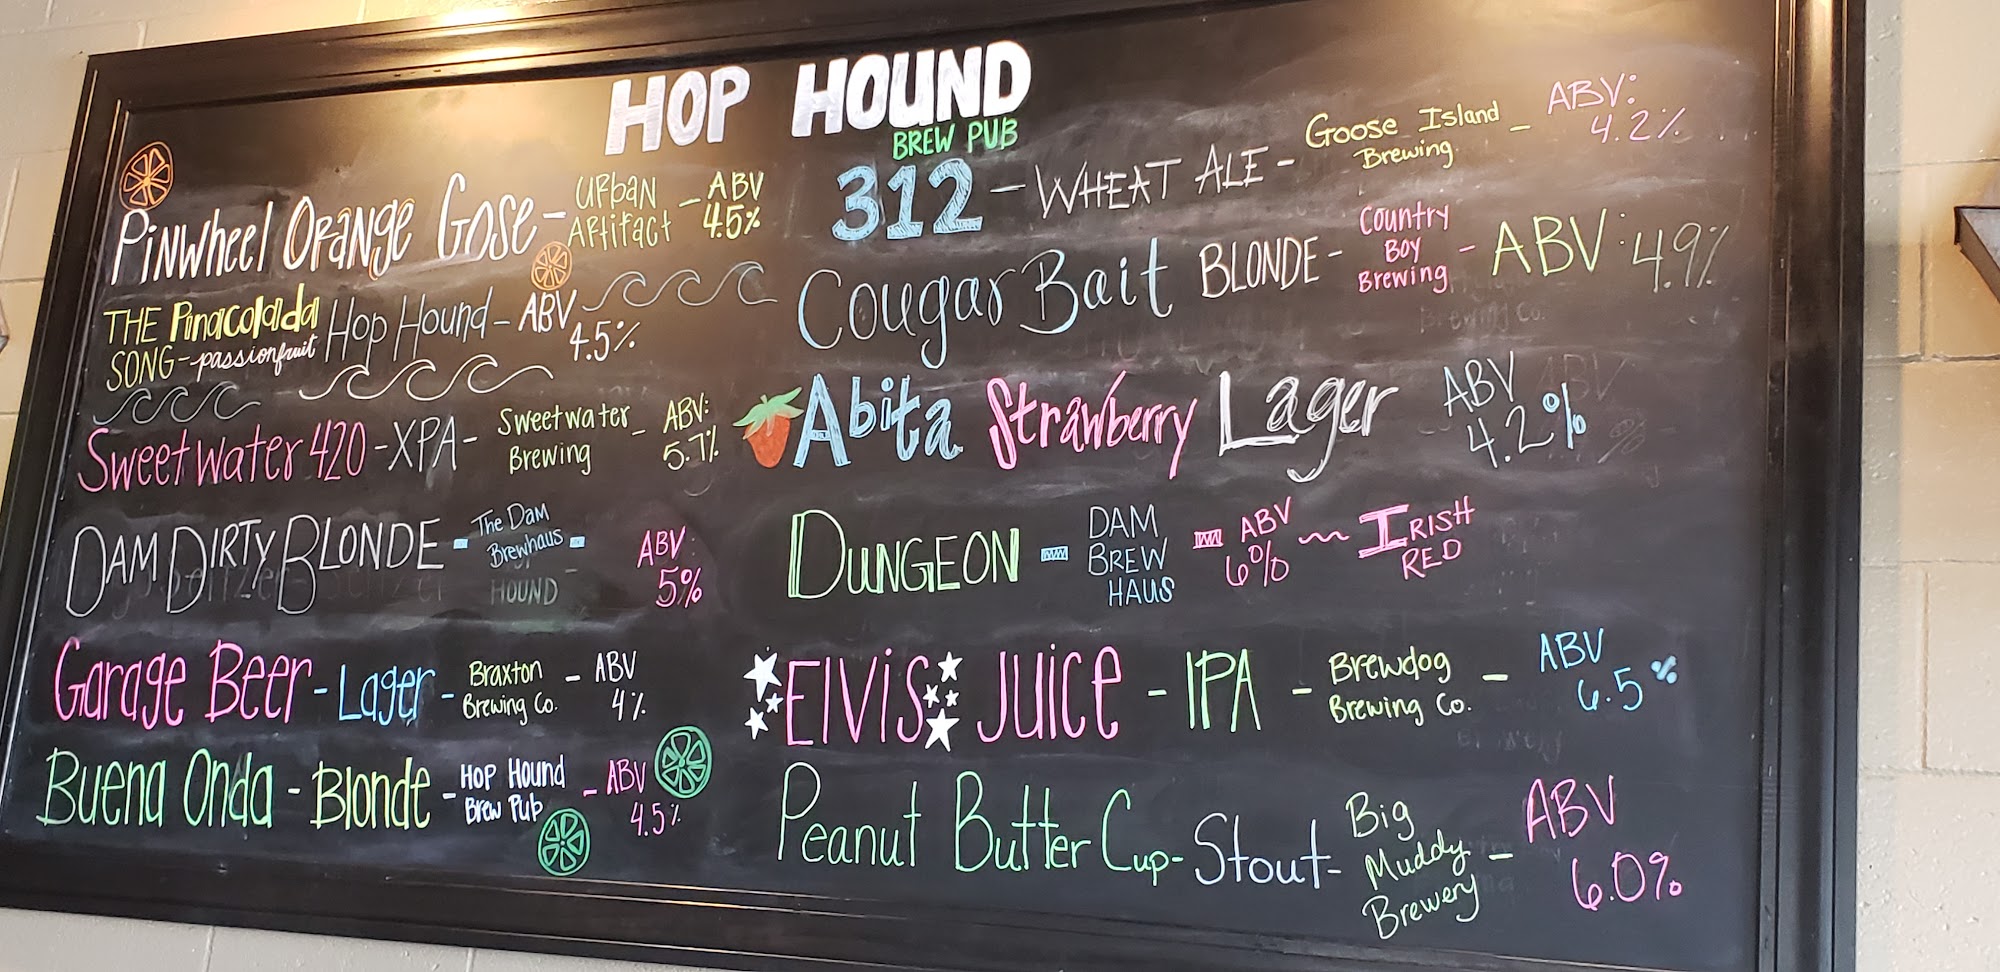 HOP HOUND
BREW PUB
PINWheel ORANGE GOSE - URbaN - ABV
ARtifact 4.5%
THE Pinacolada Hop Hound - ABV
SONG - passionfruit 4.5%
Sweetwater 420 - XPA - Sweetwater - ABV:
Brewing 5.7%
DAM DIRTY BLONDE - The Dam - ABV:
Brewhaus 5%
HOUND
Garage Beer - Lager - Braxton - ABV
Brewing Co. 4%
Buena Onda - Blonde - HOP Hound - ABV
Brew Pub 4.5%
312 - WHEAT ALE - Goose Island - ABV:
Brewing 4.2%
Cougar Bait BLONDE - Country - ABV: 4.9%
Boy
Brewing
Brewing Co.
Abita Strawberry Lager ABV
4.2%
DUNGEON - DAM - ABV ~ IRISH
BREW 6% RED
HAUS
Elvis Juice - IPA - Brewdog - ABV
Brewing Co. 6.5%
Peanut Butter Cup - Stout - Big - ABV
Muddy 6.0%
Brewery